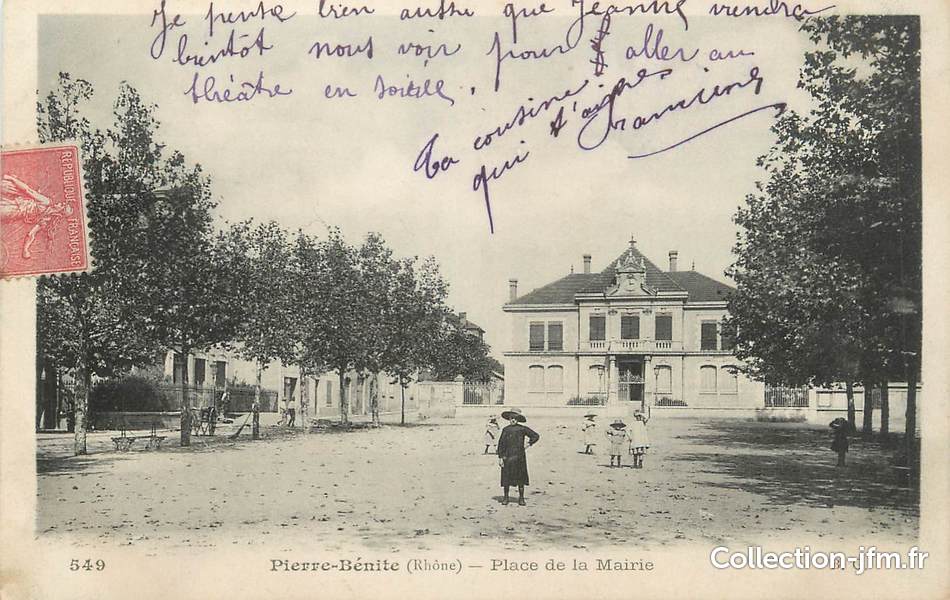 Je pense bien autre que Jeanne viendra
bientôt nous voir pour aller au
théâtre en soirée.
Ta cousine
qui t'aime
Francine
REPUBLIQUE FRANCAISE
549 Pierre-Bénite (Rhône) — Place de la Mairie
Collection-jfm.fr